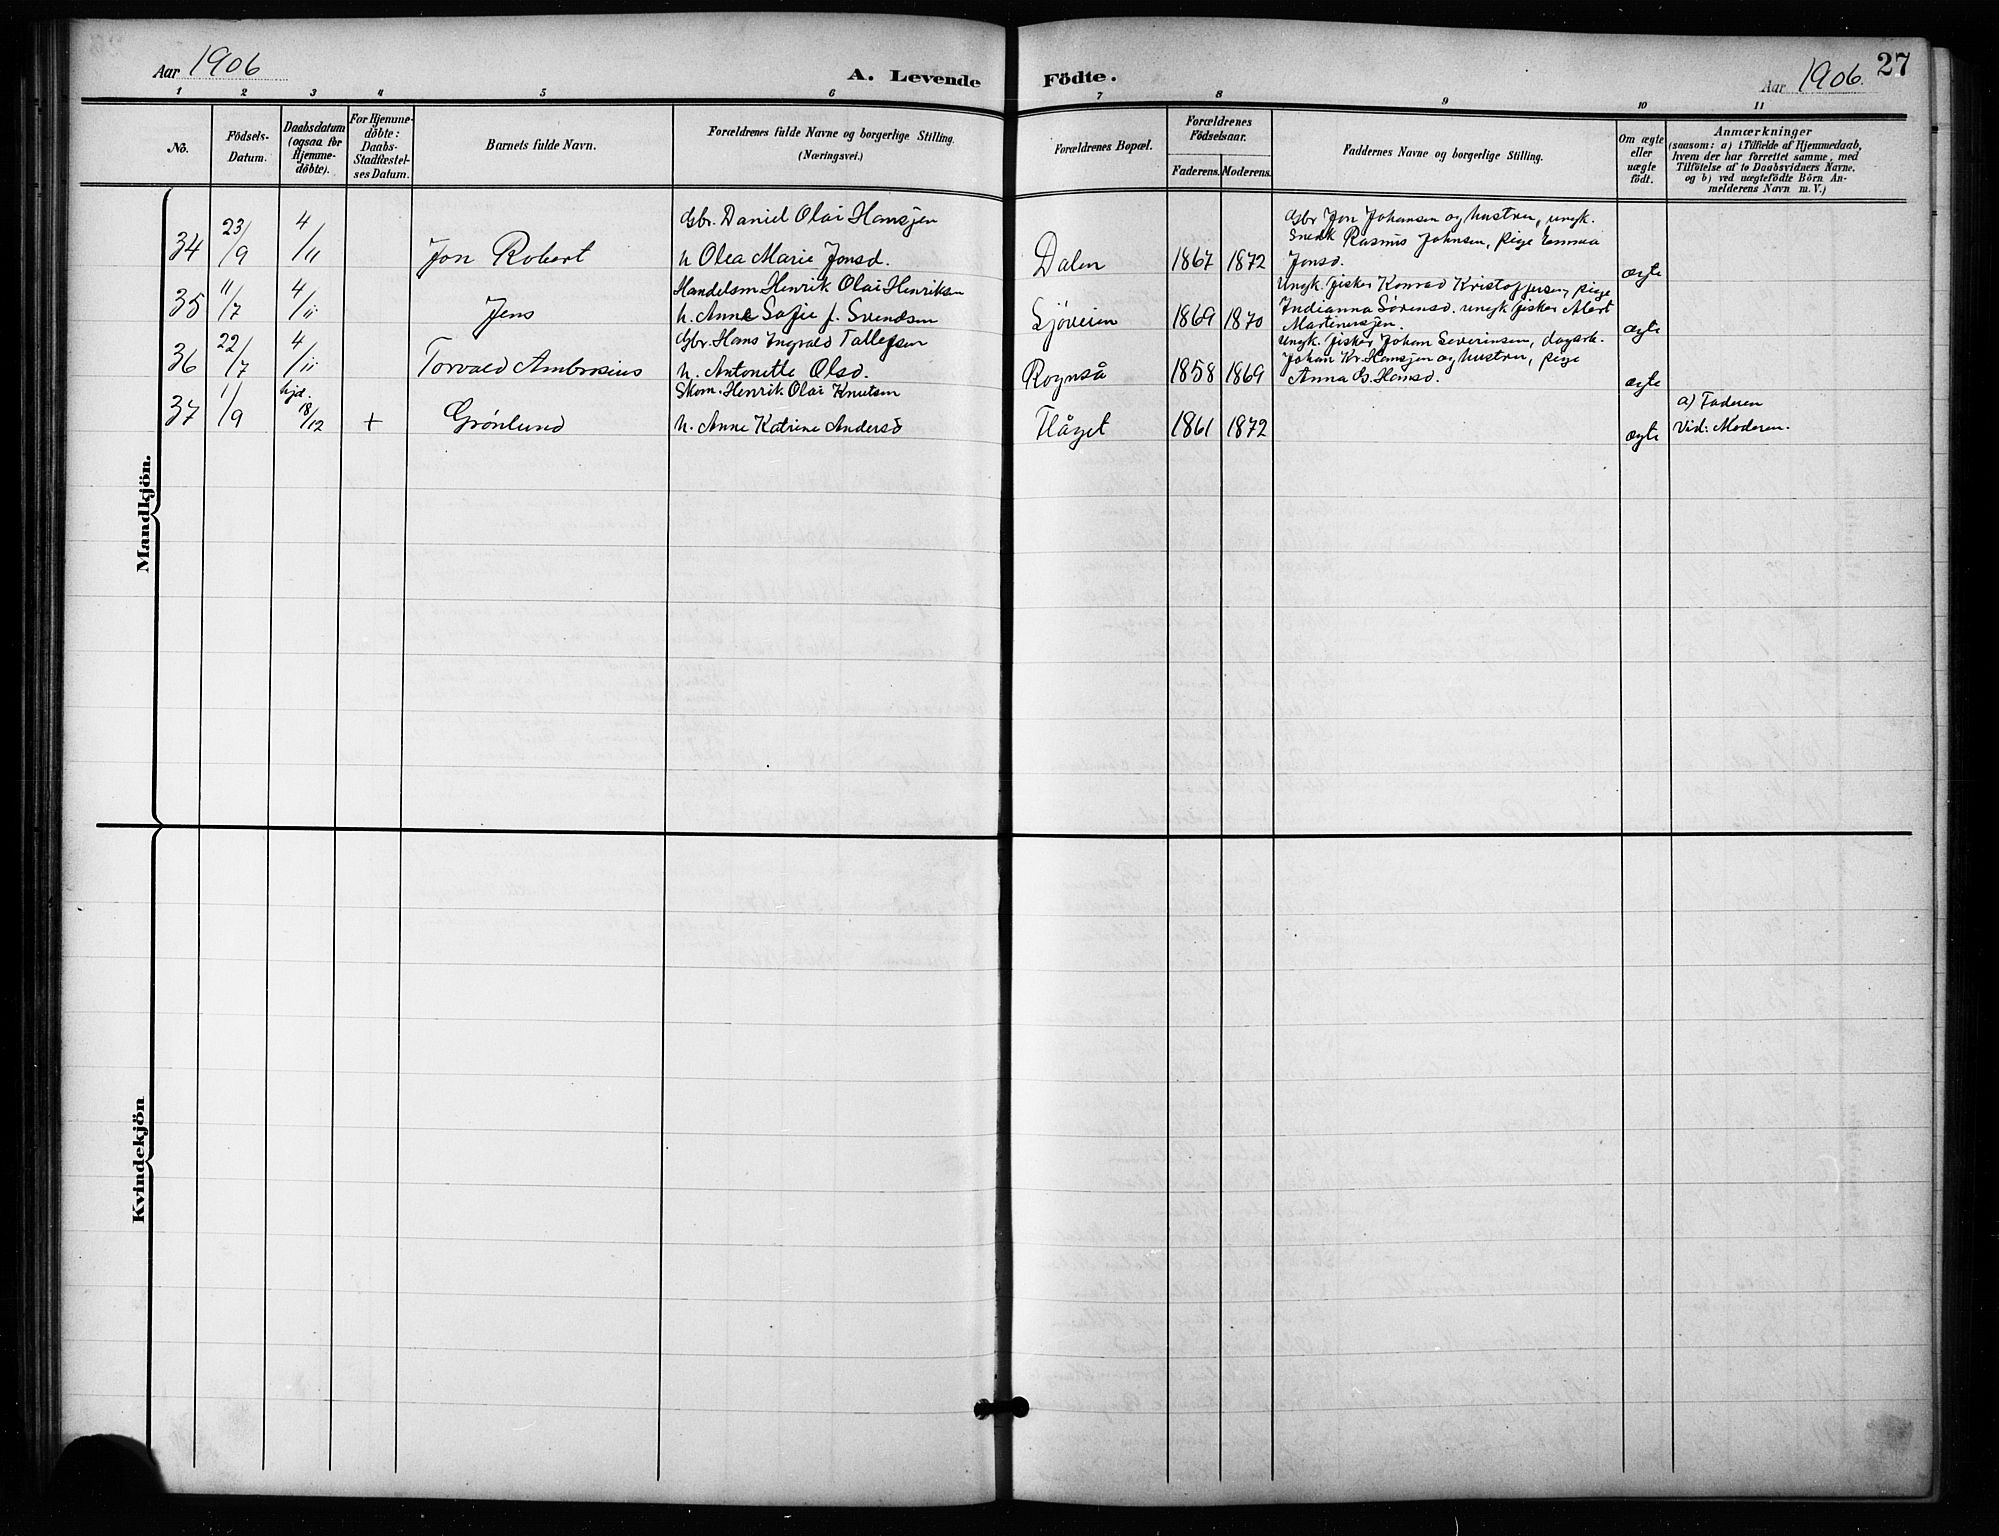 Aar 1906
A. Levende Födte.
Aar 1906.
27
1 2 3 4 5 6 7 8 9 10 11
No.
Födsels-
Datum.
Daabsdatum
(ogsaa for
Hjemme-
döbte).
For Hjemme-
döbte:
Daabs-
Stadfæstel-
ses Datum.
Barnets fulde Navn.
Forældrenes fulde Navne og borgerlige Stilling.
(Næringsvei.)
Forældrenes Bopæl.
Forældrenes
Födselsaar.
Faderens. Moderens.
Faddernes Navne og borgerlige Stilling.
Om ægte
eller
uægte
födt.
Anmærkninger
(saasom: a) i Tilfælde af Hjemmedaab,
hvem der har forrettet samme, med
Tilföielse af to Daabsvidners Navne.
og b) ved uægtefödte Börn An-
melderens Navn m. V.)
Mandkjön.
34 23/9 4/11 Jon Robert
Gbr. Daniel Olai Hansjen
h Olea Marie Jonsd.
Dalen 1867 1872
Gbr Jon Johansen og hustru, ungk.
Snedk Rasmus Johnsen, pige Emma
Jonsd.
ægte
35 11/7 4/11 Jens
Handelsm Henrik Olai Henriksen
h. Anne Sofie f. Svendsen
Sjøveien 1869 1870
Ungk. fisker Konrad Kristoffersen, pige
Indianna Sørensd. ungk fisker Albert
Martinussen.
ægte
36 22/7 4/11 Torvald Ambrosius
Gbr. Hans Ingvald Tollefsen
h. Antonette Olsd.
Rognså 1858 1869
Ungk. fisker Johan Severinsen, dagarb.
Johan Kr. Hansjen og hustru, pige
Anna B. Hansd.
ægte
37 1/9 hjd. 18/12 + Grønlund
Skom. Henrik Olai Knutsen
h. Anne Katrine Andersd
Flåget 1861 1872
ægte
a) Faderen
Vid: Moderen.
Kvindekjön